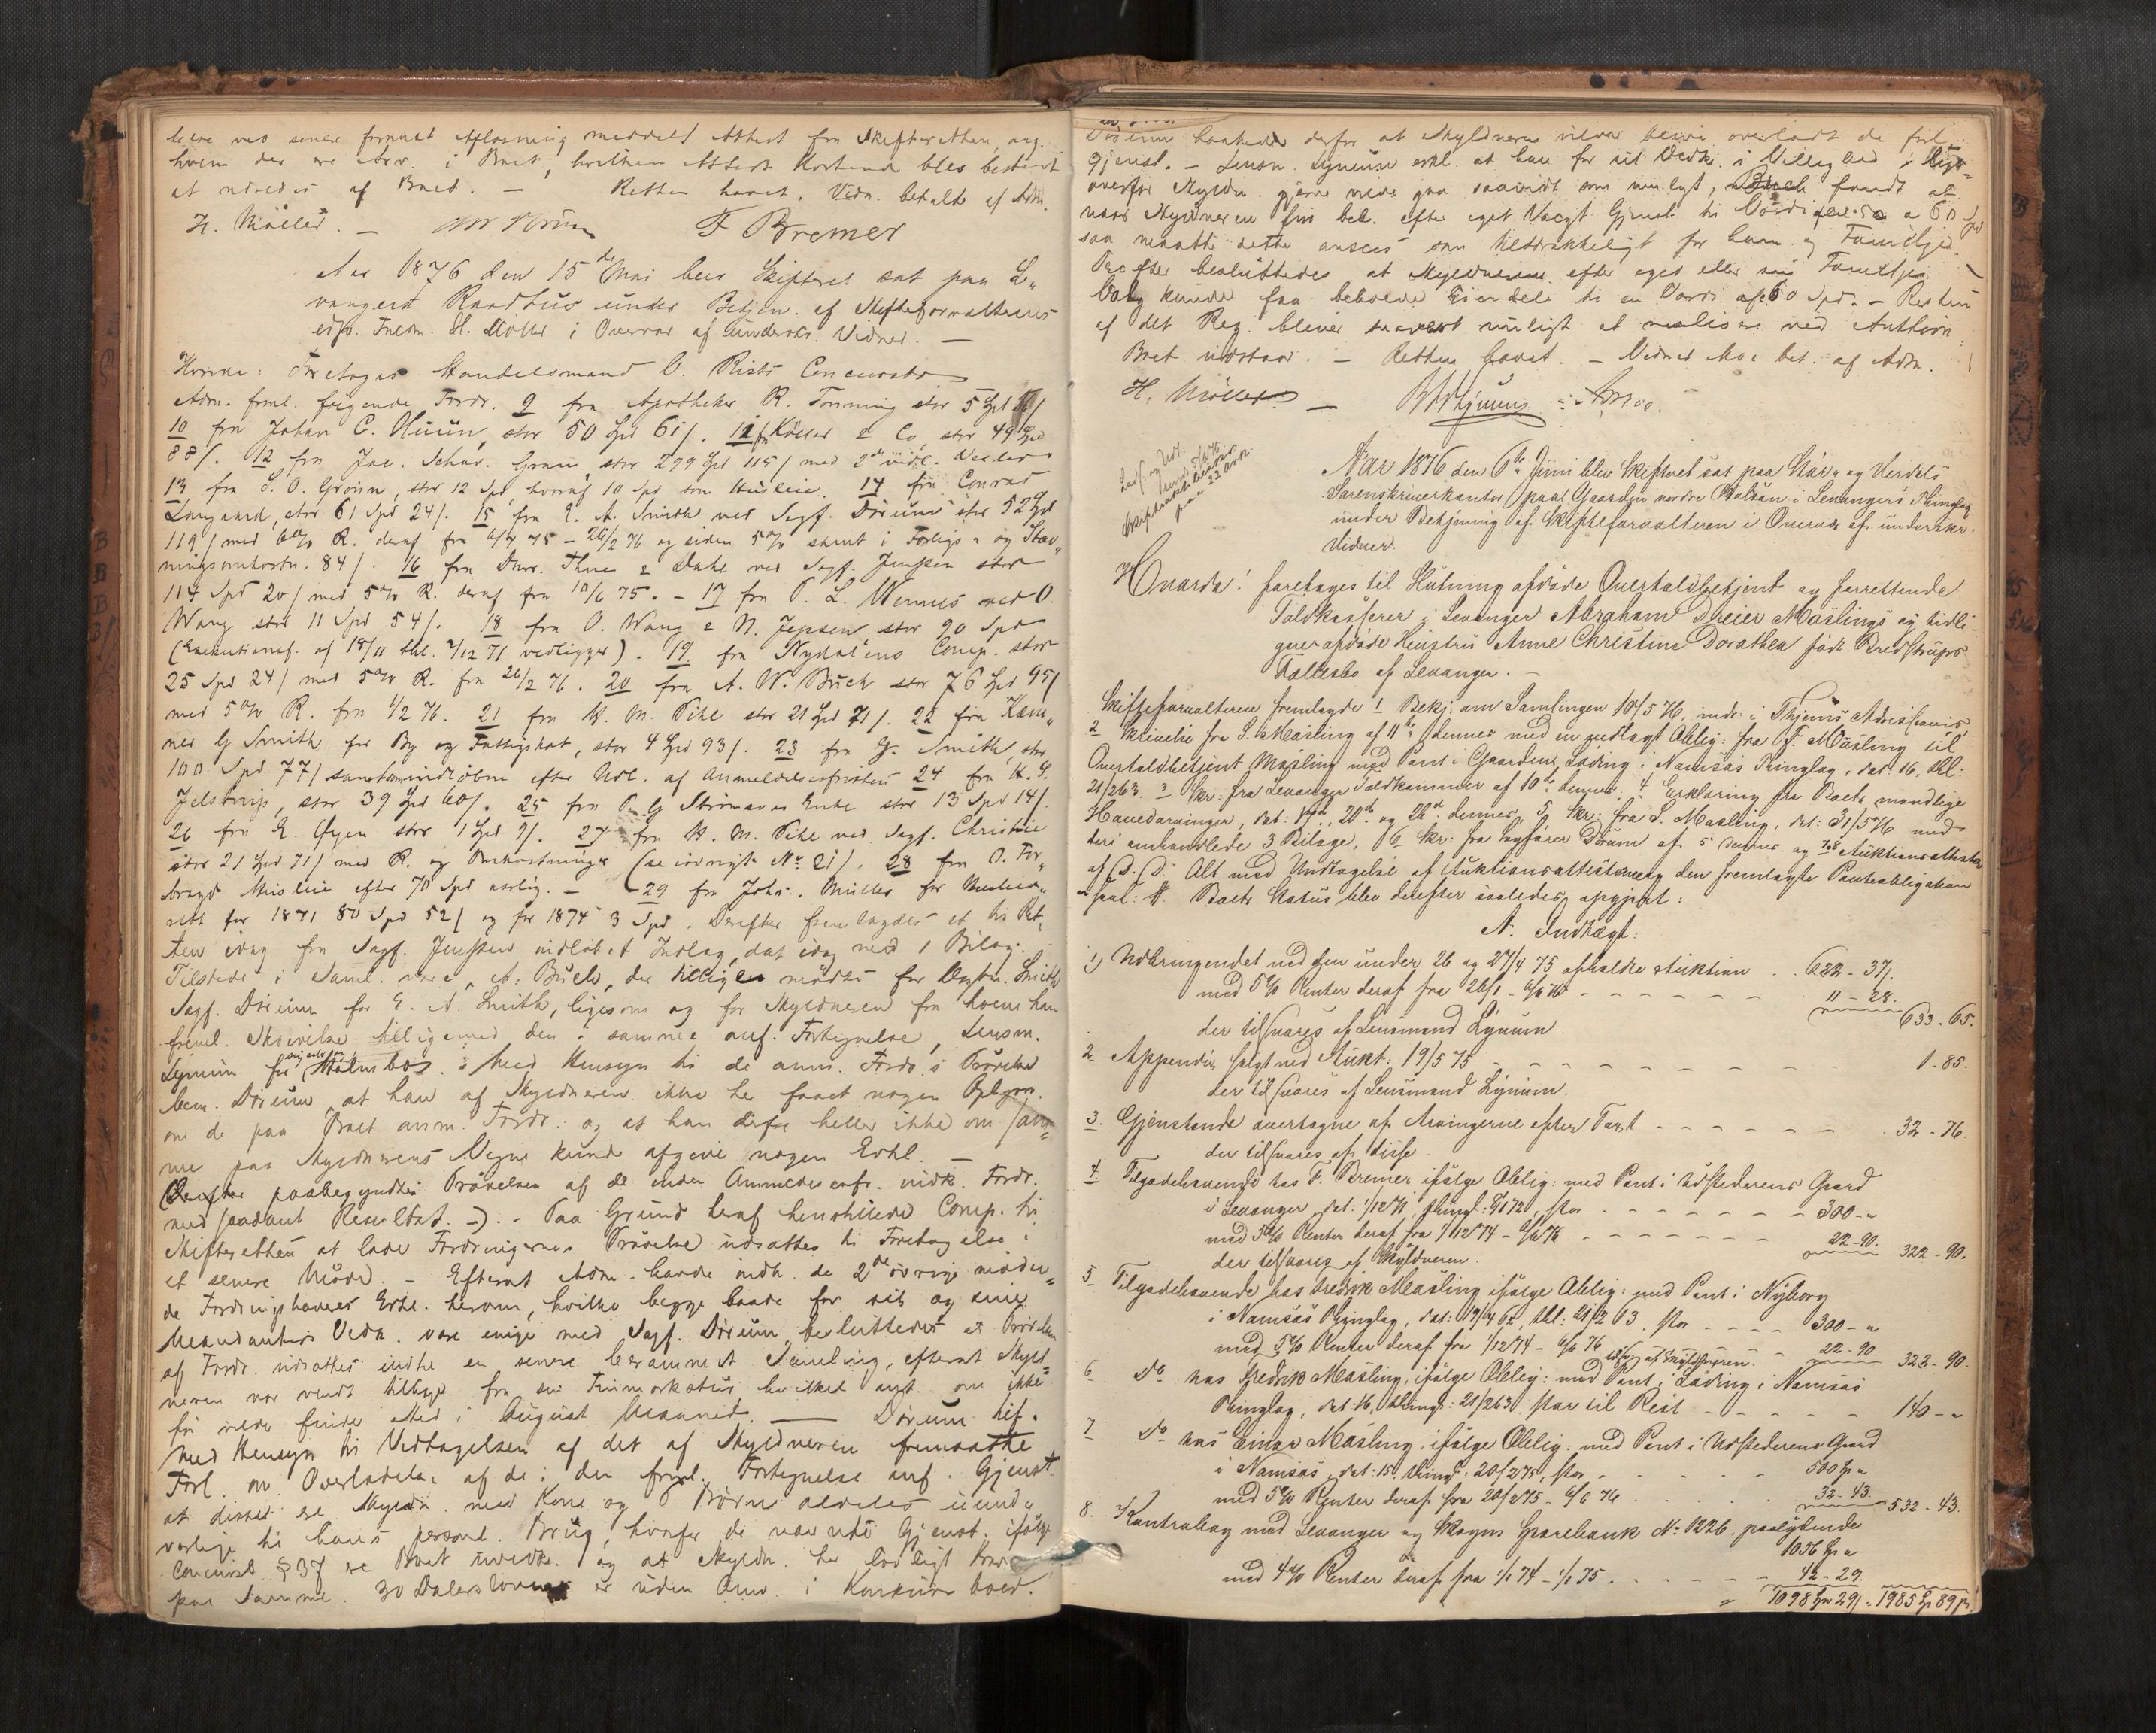 blive ved senere formaat Aflæsning meddelt Attest fra Skifteretten, ang.
hvem der ere Arv. i Boet, hvilken Attests Kostende blev bestemt
at udredes af Boet. — Retten hævet. Vidn. betalte af Adm.
H. Møller. — F Bremer
Aar 1876 den 15de Mai blev Skifteret sat paa Le„
vangers Raadhus under Betjen. af Skifteforvalterens
edsv. Fuldm. H. Møller i Overvær af underskr. Vidner. —
Hvorda: Foretoges Handelsmand C. Rists Concursbo
Adm. freml. følgende Fordr. 9 fra Apotheker R. Tønning stor 5 Spd
10 fra Johan C. Huun, stor 50 Spd 61 ſ. 11 fra Köller & Co, stor 49 Spd
88 ſ. 12 fra Jac. Schav. Gram stor 299 Spd 115 ſ med 2de vidl. Vexler
13 fra L. O. Grønn, stor 12 Spd, hvoraf 10 Spd som Husleie. 14 fra Conrad
Langaard, stor 61 Spd 24 ſ. 15 fra E. A. Smith ved Sagf. Dørum stor 52 Spd
119 ſ med 6% R. deraf fra 75 — 26/2 76 og siden 5% samt i Forligs- og Stæv„
ningsomkostn. 84 ſ. 16 fra Dhrr. Thue & Dahl ved Sagf. Jenssen stor
114 Spd 20 ſ med 5% R. deraf fra 10/6 75. — 17 fra P. L. Wennes ved O.
Wang stor 11 Spd 54 ſ. 18 fra O. Wang & N. Jepsen, stor 90 Spd
(Executionsf. af 18/11 thl. 2/12 71 vedligger). 19 fra Nydalens Comp. stor
25 Spd 24 ſ med 5% R. fra 26/2 76. 20 fra A. W. Buch stor 76 Spd 95 ſ
med 5% R. fra 1/2 76. 21 fra H. M. Pihl stor 21 Spd 71 ſ. 22 fra Kæm„
ner G Smith for By og Fattigskat, stor 4 Spd 93 ſ. 23 fra G. Smith, stor
100 Spd 77 ſ samt indløbne efter Udl. af Anmeldelsesfristen 24 fra H. S.
Jelstrup, stor 39 Spd 60 ſ. 25 fra O. G Strømans Enke stor 13 Spd 14 ſ.
26 fra E. Øyen stor 1 Spd 9 ſ. 27 fra H. M. Pihl ved Sagf. Christie
stor 21 Spd 71 ſ med R. og Omkostninger (se iøvrigt No 21). 28 fra O. For„
bragd Husleie efter 70 Spd aarlig. — 29 fra Johs. Müller for Husleie„
rest for 1871 80 Spd 52 ſ og for 1874 3 Spd. Derefter fremlagdes et til Ret„
ten idag fra Sagf. Jenssen indløbet Indlæg, dat. idag med 1 Bilag.
Tilstede i Saml. vare A. Buch, der tillige mødte for Bogtr. Smith
Sagf. Dørum for E. A Smith, ligesom og for Skyldneren fra hvem han
freml. Skrivelse tilligemed den i samme anf. Fortegnelse, Lensm.
Lynum for sig selv og Holmboe. Med Hensyn til de anm. Fordr.s Prøvelse
bem. Dørum, at han af Skyldneren ikke har faaet nogen Oplysn.
om de paa Boet anm. Fordr. og at han derfor heller ikke om sam„
me paa Skyldnerens Vegne kunde afgive nogen Erkl. —
(Derefter paabegyndtes Prøvelsen af de inden Anmeldelsesfr. indk. Fordr.
med saadant Resultat. —). — Paa Grund heraf henstillede Comp. til
Skifteretten at lade Fordringernes Prøvelse udsættes til Foretagelse i
et senere Møde. — Efterat Adm. havde indh. de 2de øvrige møden„
de Fordringshaveres Erkl. herom, hvilke begge baade for sig og sine
Mandanters Vedk. vare enige med Sagf. Dørum, besluttedes at Prøvelsen
af Fordr. udsættes indtil en senere berammet Samling, efterat Skyld„
neren var vendt tilbage fra sin Finmarkstur, hvilket antl. om ikke
før vilde finde Sted i August Maaned. — Dørum tilf.
med Hensyn til Vedtagelsen af det af Skyldneren fremsatte
Forl. om Overladelse af de i den freml. Fortegnelse anf. Gjenst.
at disse ere Skyldn. med Kone og 6 Børn aldeles uund„
værlige til hans personl. Brug, hvorfor de nævnte Gjenst. ifølge
Concursl. § 37 ere Boet uvedk. og at Skyldn. har lovligt Krav
paa samme. 30 Dalersloven er uden Anv. i Konkursboer.
Dørum paastod derfor at Skyldneren vilde blive overladt de frl.
Gjenst. — Lensm. Lynum erkl. at han for sit Vedk. i Villighed ligeoverfor
Skyldn. gjerne vilde gaa saavidt som muligt, Buch fandt at
naar Skyldneren fik beh. efter eget Valg Gjenst. til Værdi af 60 Spd
saa maatte dette ansees som tilstrækkeligt for ham og Familje.
Derefter besluttedes at Skyldneren efter eget eller sin Familjes
Valg kunde faa beholde Eiendele til en Værdi af 60 Spd. — Resten
af det Reg. bliver snarest muligt at realisere ved Auktion.
Boet udstaar. — Retten hævet. — Vidnet Moe bet. af Adm.
H. Møller — BHLynum AMoe.
Aar 1876 den 6te Juni blev Skifteret sat paa Stør- og Værdals
Sorenskriverkontor paa Gaarden nordre Halsan i Levangers Thinglag
under Betjening af Skifteforvalteren i Overvær af underskr.
Vidner.
Hvorda! foretoges til Slutning afdøde Overtoldbetjent og forrettende
Toldkasserer i Levanger Abraham Dreier Mäslings og tidli„
gere afdøde Hustru Anne Christine Dorothea født Bredstrups
Fællesbo af Levanger. —
Skifteforvalteren fremlagde 1 Bekj. om Samlingen 10/5 76, indr. i Thjems Adresseavis
2 Skrivelse fra S. Mäsling af 11te dennes med en vedlagt Oblig: fra F. Mäsling til
Overtoldbetjent Mäsling med Pant i Gaarden Løding i Namsos Thinglag, dat. 16, thl:
21/2 63. 3 Skr: fra Levanger Toldkammer af 10de dennes. 4 Erklæring fra Boets myndige
Hovedarvinger, dat: 19de, 20de og 22de dennes, 5 Skr: fra S. Mæsling, dat: 31/5 76 med
deri omhandlede 3 Bilage, 6 Skr: fra Sagfører Dørum af 5 dennes og 7 og 8 Auktionsattester
af D. D. Alt med Undtagelse af Auktionsattesterne og den fremlagte Panteobligation
saal: # Boets Status blev derefter saaledes opgjort:
A. Indtægt.
1) Udbringendet ved den under 26 og 27/4 75 afholdte Auktion . . 622 - 37.
med 5% Renter deraf fra 26/1 - 6/6 76 - - - - - 11 - 28.
633. 65.
der tilsvares af Lensmand Lynum.
2 Appendix solgt ved Aukt: 19/5 75 - - - - - - 1. 85.
der tilsvares af Lensmand Lynum.
3. Gjenstande overtagne af Arvingerne efter Taxt - - - - - - 32 - 76.
der tilsvares af disse
4 Tilgodehavende hos F. Bremer ifølge Oblig: med Pant i Udstederens Gaard
i Levanger, dat: 1/12 71, thingl: 72, stor - - - - - - 300 - "
med 5% Renter deraf fra 1/12 74 - 6/6 76 - - - - - - 22 - 90. 322 - 90.
der tilsvares af Skyldneren.
5 Tilgodehavende hos Fredrik Mäsling ifølge Oblig: med Pant i Nyborg
i Namsos Thinglag, dat: 19/4 62, thl: 21/2 63, stor - - - - 300 - "
med 5% Renter deraf fra 1/12 74 - 6/6 76 tilsv: af Skyldneren. - 22 - 90. 322 - 90.
6 Do hos Fredrik Mäsling, ifølge Oblig: med Pant i Løding i Namsos
Thinglag, dat. 16, thingl: 21/2 63, stor til Rest - - - - - 140 - "
7 Do hos Einar Mäsling, ifølge Oblig: med Pant i Udstederens Gaard
i Namsos, dat: 15, thingl: 20/2 75, stor - - - - - 500 Sp "
med 5% Renter deraf fra 20/2 75 - 6/6 76 . . . . . 32 - 43. 532 - 43.
8. Kontrabog med Levanger og Skogns Sparebank No 1226 paalydende
1056 Sp "
med 4% Renter deraf fra 1/1 74 - 1/1 75 . . - - - - 42 - 29.
1098 Sp 29 ſ. 1985 Sp 89 ſ